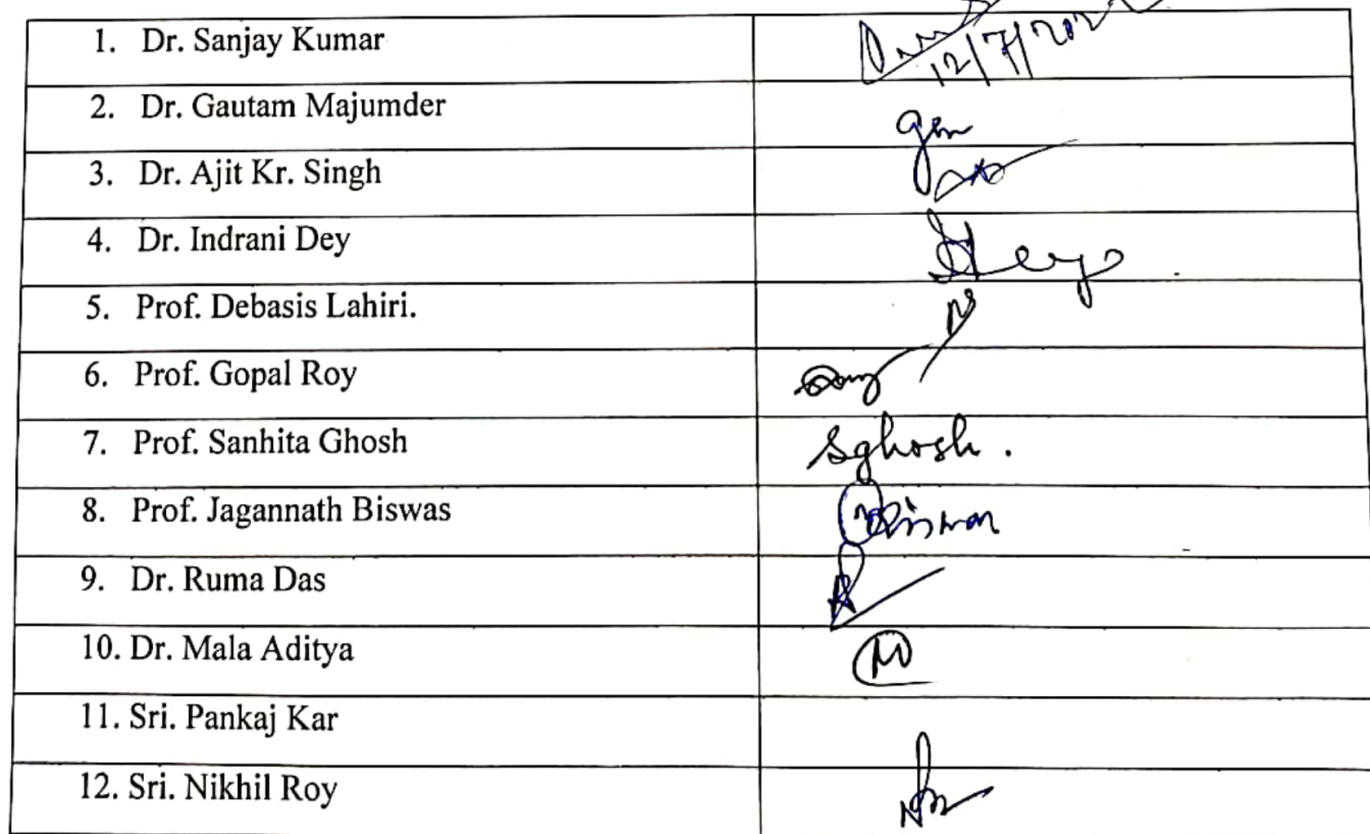 1. Dr. Sanjay Kumar
12/7/202
2. Dr. Gautam Majumder
gm
3. Dr. Ajit Kr. Singh
4. Dr. Indrani Dey
IDey
5. Prof. Debasis Lahiri.
6. Prof. Gopal Roy
7. Prof. Sanhita Ghosh
Sghosh.
8. Prof. Jagannath Biswas
Biswas
9. Dr. Ruma Das
10. Dr. Mala Aditya
11. Sri. Pankaj Kar
12. Sri. Nikhil Roy